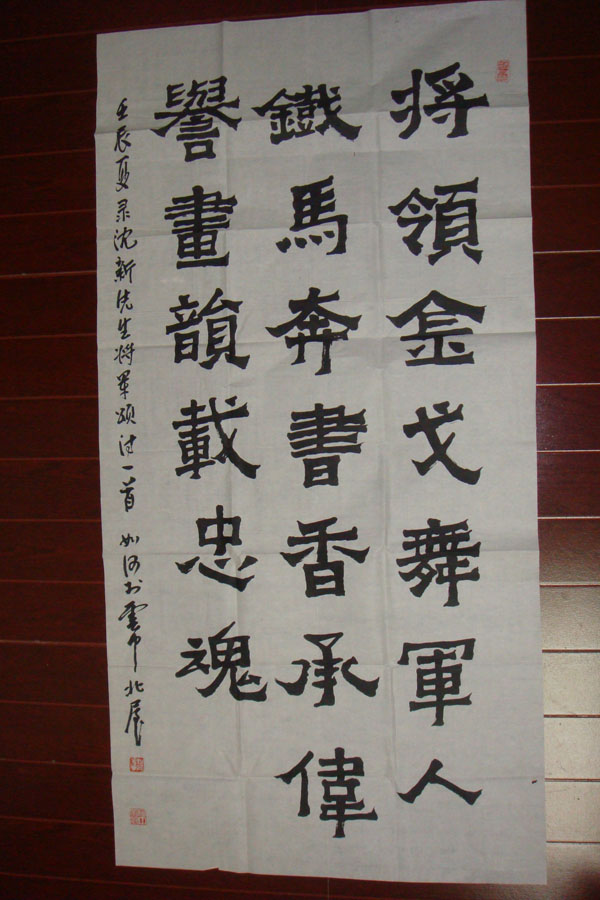 将領金戈舞軍人
鐵馬奔書香承偉
譽畫韻載忠魂
壬辰夏录沈新先生将军颂诗一首 如河於雲中北